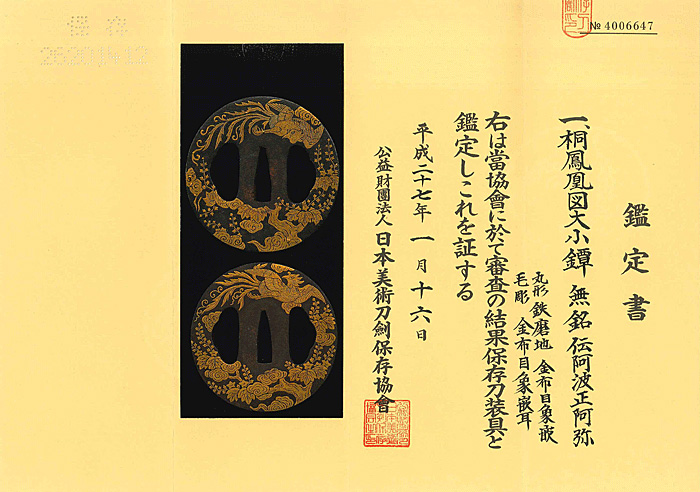 № 4006647
鑑定書
一、桐鳳凰図大小鐔 無銘 伝阿波正阿弥
丸形 鉄磨地 金布目象嵌
毛彫 金布目象嵌耳
右は當協會に於て審査の結果保存刀装具と
鑑定しこれを証する
平成二十七年 一月十六日
公益財團法人 日本美術刀劍保存協會